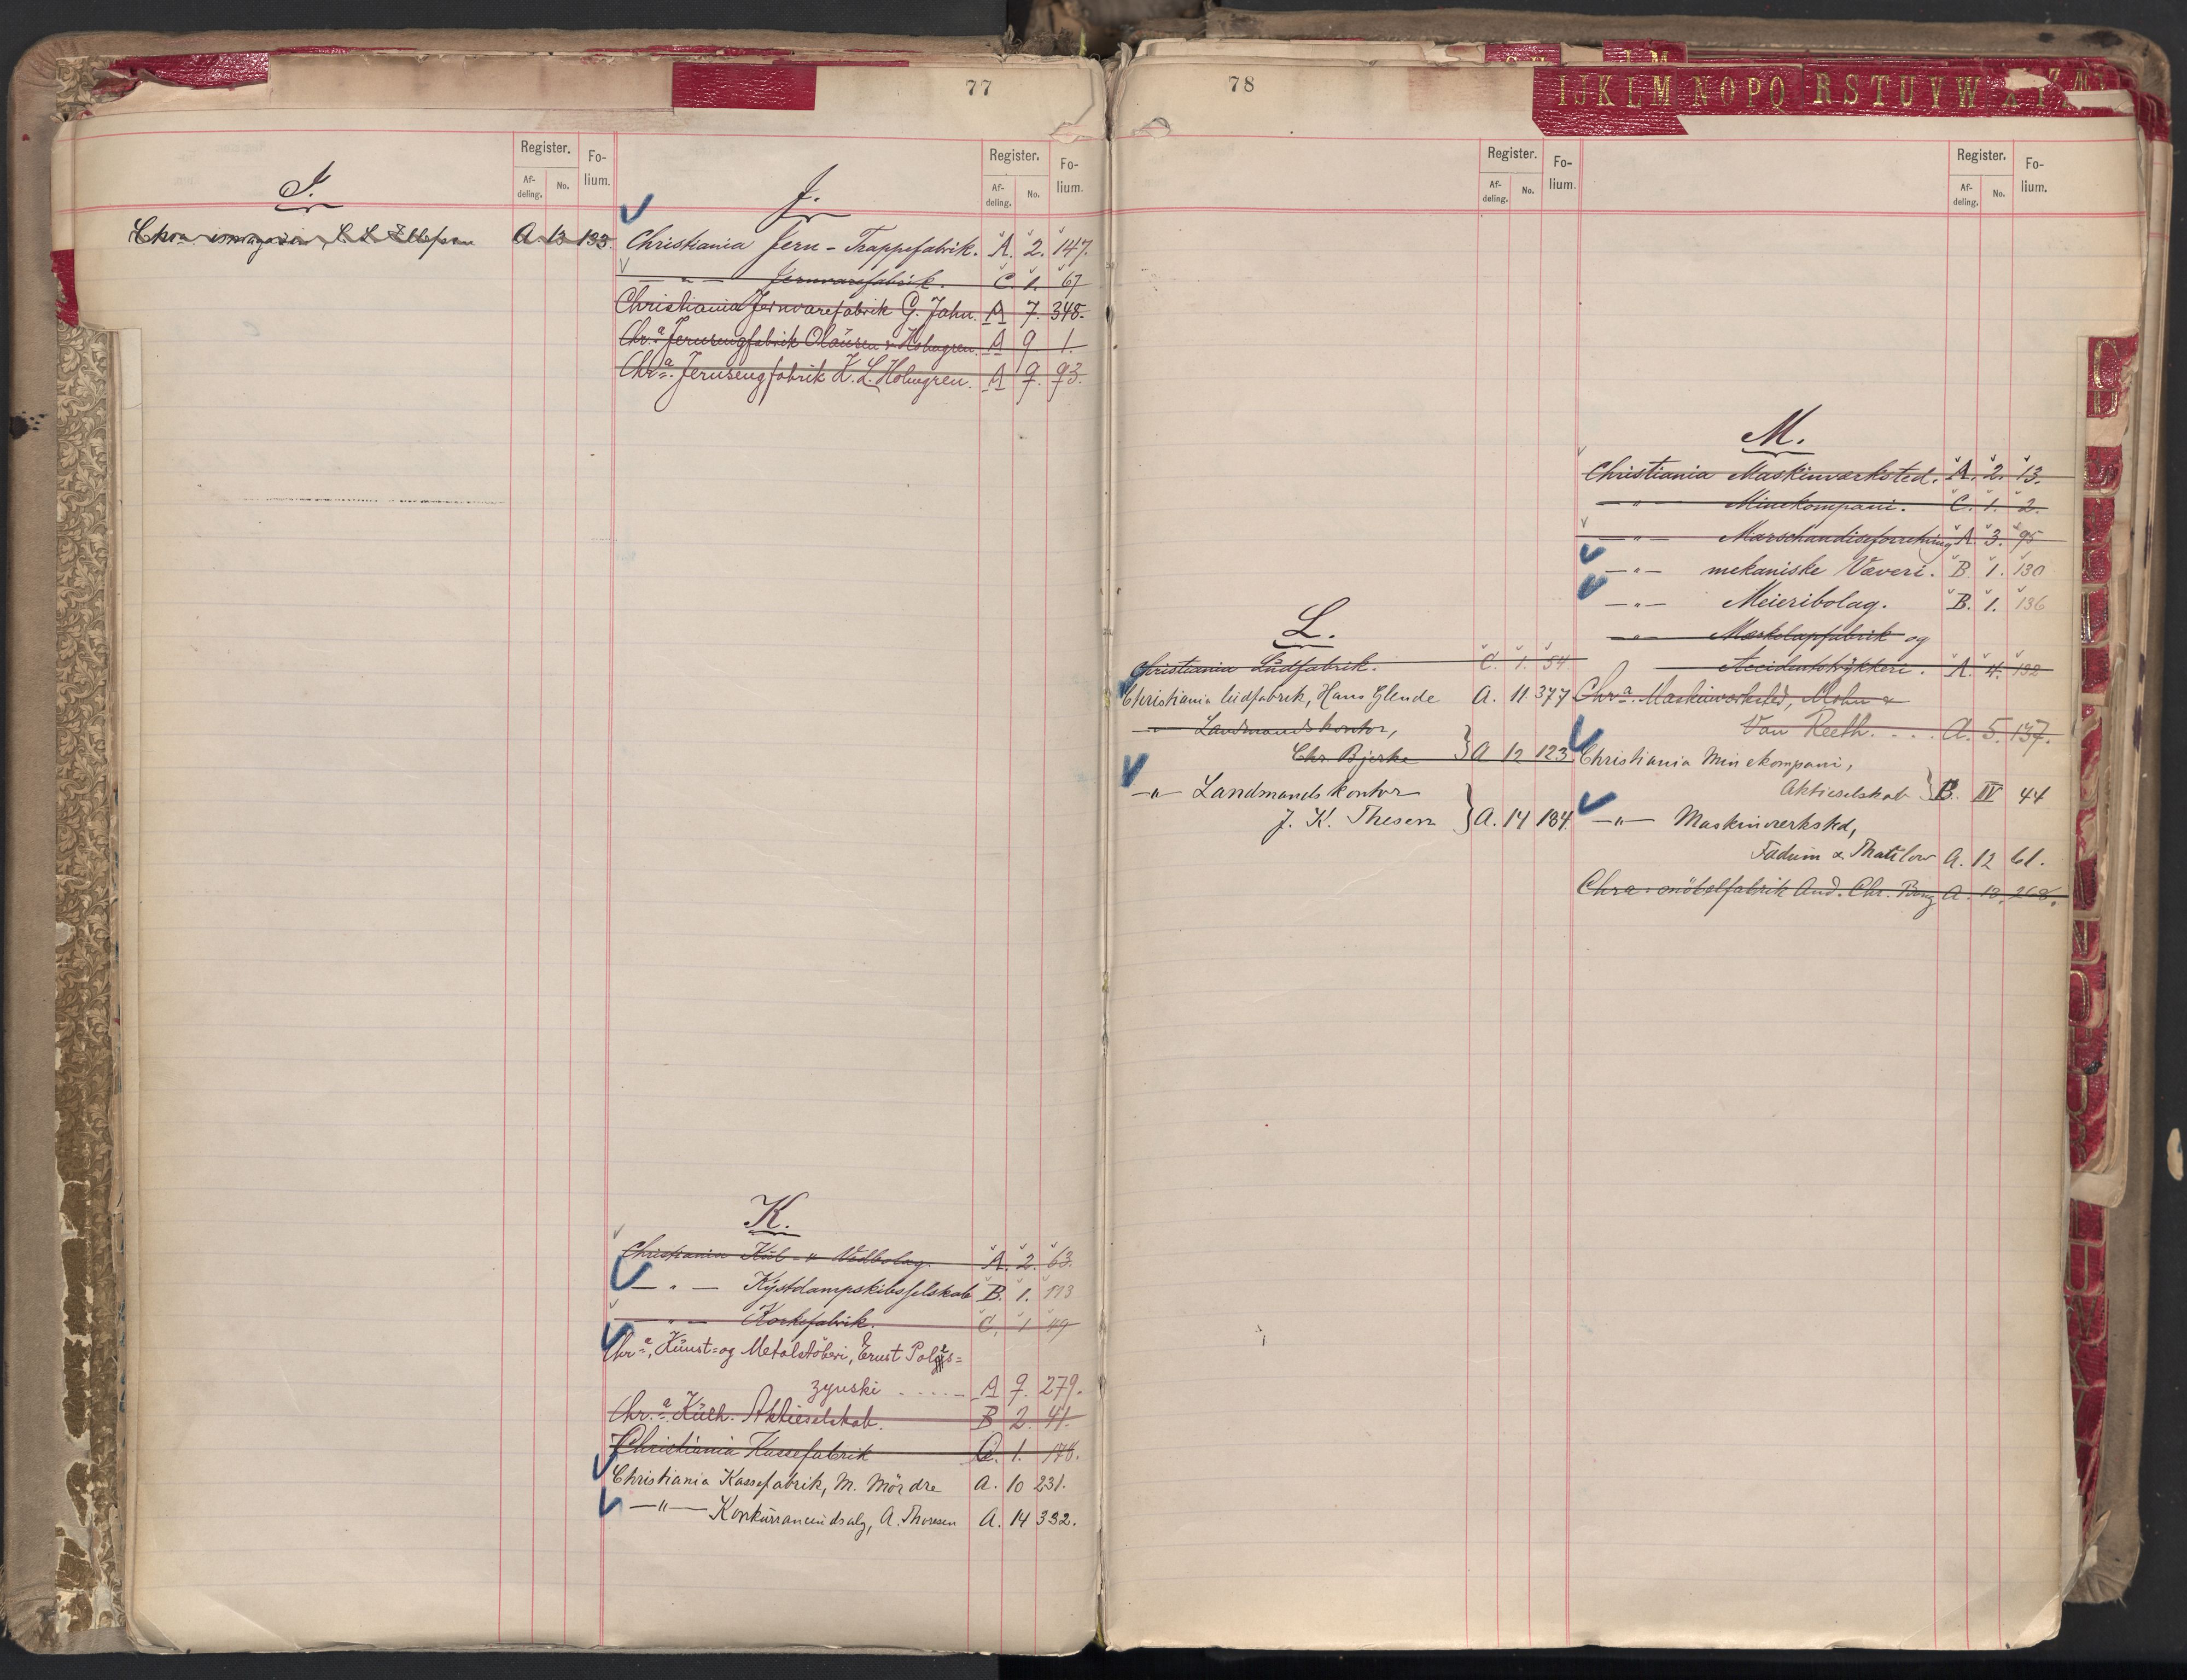 77
Register. Fo-
lium.
Af-
deling. No.
I.
Chra ismagasin, Ellefsen A 13 133.
Register. Fo-
lium.
Af-
deling. No.
J.
Christiania Jern-Trappefabrik. A. 2. 147.
— " — Jernvarefabrik. C. 1. 67
Christiania Jernvarefabrik G. Jahn. A 7. 348.
Chr.a Jernsengfabrik Olausen & Holmgren. A 9 1.
Chr.a Jernsengfabrik K. L. Holmgren. A 9. 93.
K.
Christiania Kul- & Vedbolag. A. 2. 63.
— " — Kystdampskibsselskab B. 1. 113
— " — Korkefabrik. C. 1 49
Chr.a, Kunst- og Metalstöberi, Ernst Poles=
zynski . . . . . A 9. 279.
Chr.a Kulh. Aktieselskab. B 2. 41.
Christiania Kassefabrik C. 1. 146.
Christiania Kassefabrik, M. Mördre A. 10 231.
— " — Konkurranceudsalg, A. Thoresen A. 14 332.
78
IJKLM NOPQ RSTUVW
Register. Fo-
lium.
Af-
deling. No.
L.
Christiania Ludfabrik. C. 1. 54
Christiania ludfabrik, Hans Glende A. 11 377
— " — Landmandskontor,
Chr. Bjerke } A 12 123
— " — Landmandskontor
J. K. Thesen } A. 14 184.
Register. Fo-
lium.
Af-
deling. No.
M.
Christiania Maskinværksted. A. 2. 13.
— " — Minekompani. C. 1. 2.
— " — Marschandiseforretning A 3. 95
— " — mekaniske Væveri. B 1. 130
— " — Meieribolag. B. 1. 136
— " — Mærkelapfabrik og
Accidenstrykkeri. A. 4. 132
Chr.a Maskinværksted, Mohn &
Van Reeth. . . . A. 5. 137.
Christiania Minekompani,
Aktieselskab } B. IV 44
— " — Maskinverksted,
Fadum & A. 12 61.
Chra. möbelfabrik And. Chr. Berg A. 13, 268.